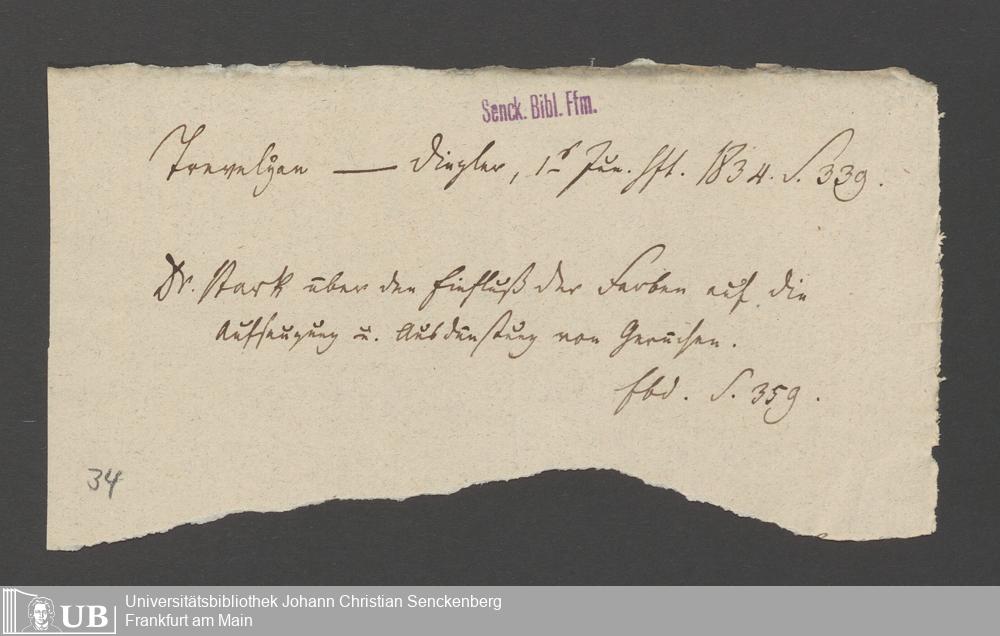 Senck. Bibl. Ffm.
Trevelyan — Dingler, 1s Jun. Hft. 1834. S. 339.
Dr. Stark über den Einfluß der Farben auf die
Aufsaugung u. Ausdünstung von Gerüchen.
Ebd. S. 359.
34
UB
Universitätsbibliothek Johann Christian Senckenberg
Frankfurt am Main